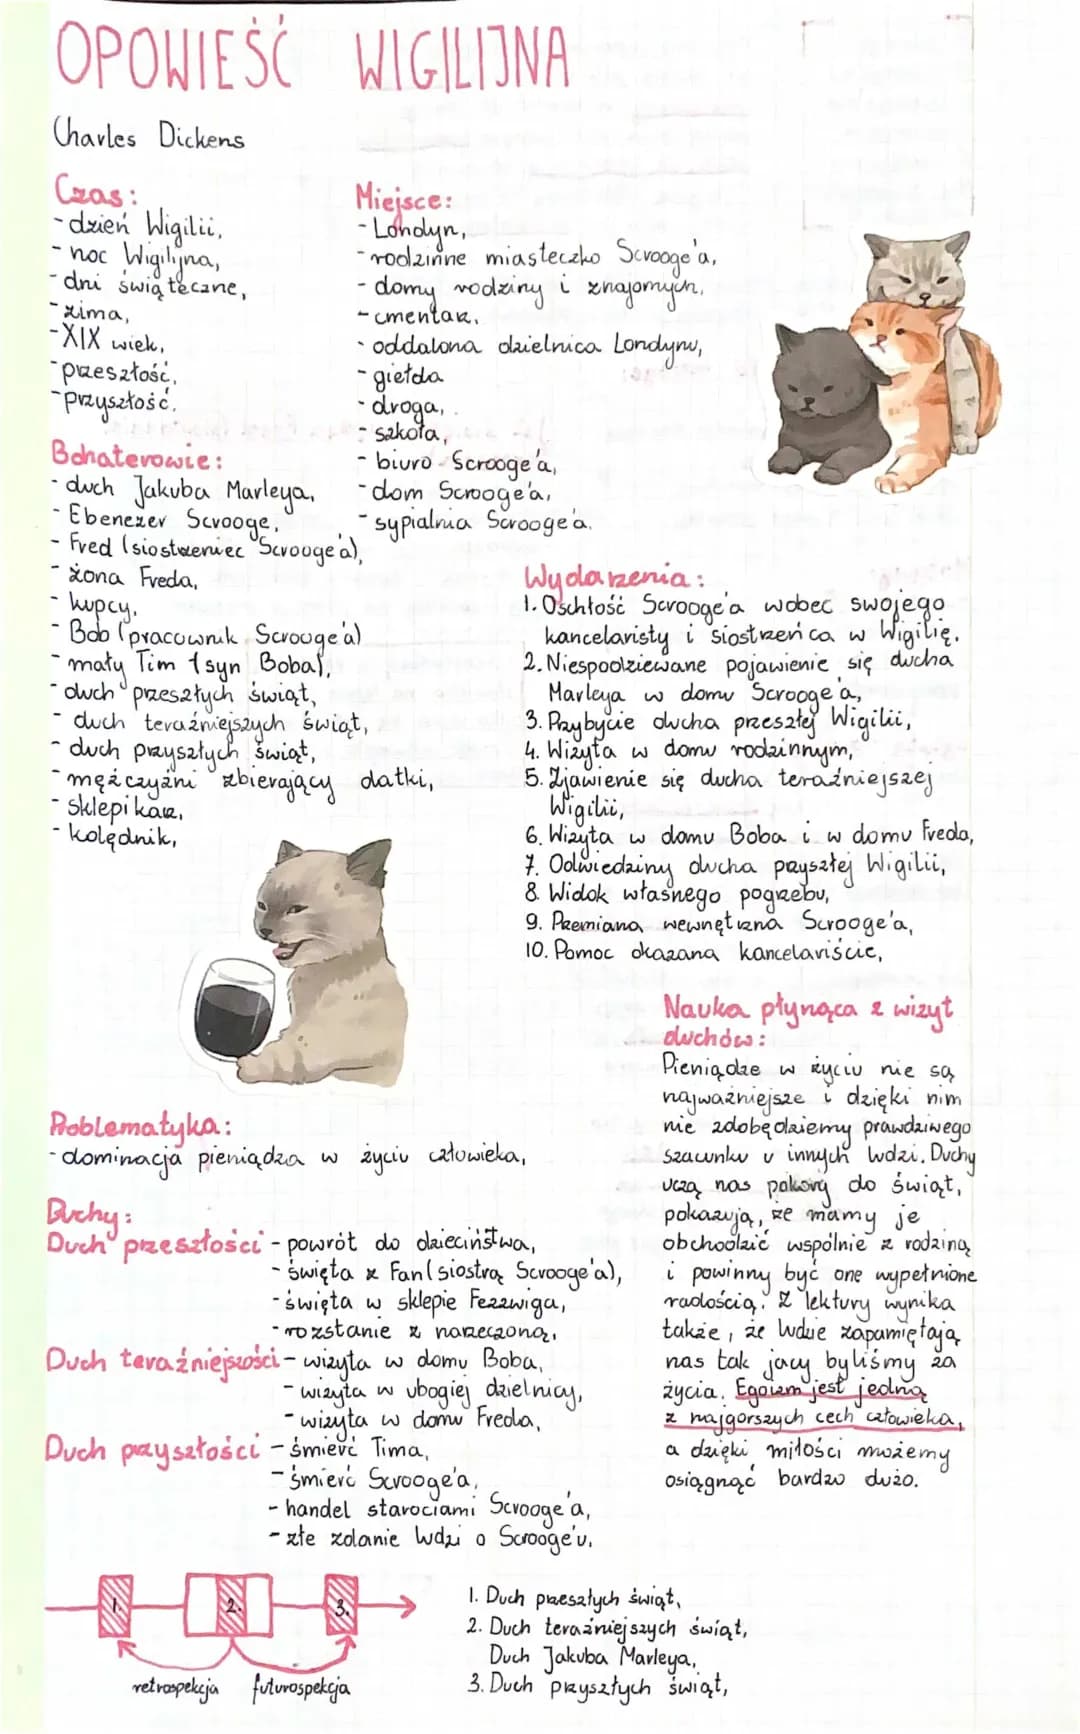 OPOWIEŚĆ WIGILIJNA
Charles Dickens
Czas:
-dzień Wigilii,
-noc Wigilijna,
-dni świąteczne,
-zima,
-XIX wiek,
-przeszłość,
-przyszłość.
Miejsce:
-Londyn,
-rodzinne miasteczko Scrooge'a,
-domy rodziny i znajomych,
-cmentarz,
-oddalona dzielnica Londynu,
-giełda
-droga,
-szkoła,
-biuro Scrooge'a,
-dom Scrooge'a,
-sypialnia Scrooge'a.
Bohaterowie:
-duch Jakuba Marleya,
-Ebenezer Scrooge,
-Fred (siostrzeniec Scrooge'a),
-żona Freda,
-kupcy,
-Bob (pracownik Scrooge'a)
-mały Tim (syn Boba),
-duch przeszłych świąt,
-duch teraźniejszych świąt,
-duch przyszłych świąt,
-mężczyźni zbierający datki,
-sklepikarz,
-kolędnik,
Wydarzenia:
1. Oschłość Scrooge'a wobec swojego
kancelaristy i siostrzeńca w Wigilię.
2. Niespodziewane pojawienie się ducha
Marleya w domu Scrooge'a,
3. Przybycie ducha przeszłej Wigilii,
4. Wizyta w domu rodzinnym,
5. Zjawienie się ducha teraźniejszej
Wigilii,
6. Wizyta w domu Boba i w domu Freda,
7. Odwiedziny ducha przyszłej Wigilii,
8. Widok własnego pogrzebu,
9. Przemiana wewnętrzna Scrooge'a,
10. Pomoc okazana kancelariście,
Nauka płynąca z wizyt
duchów:
Pieniądze w życiu nie są
najważniejsze i dzięki nim
nie zdobędziemy prawdziwego
szacunku u innych ludzi. Duchy
uczą nas pokory do świąt,
pokazują, że mamy je
obchodzić wspólnie z rodziną
i powinny być one wypełnione
radością. Z lektury wynika
także, że ludzie zapamiętają
nas tak jacy byliśmy za
życia. Egoizm jest jedną
z najgorszych cech człowieka,
a dzięki miłości możemy
osiągnąć bardzo dużo.
Problematyka:
-dominacja pieniądza w życiu człowieka,
Duchy:
Duch przeszłości - powrót do dzieciństwa,
-święta z Fan (siostrą Scrooge'a),
-święta w sklepie Fezzwiga,
-rozstanie z narzeczoną,
Duch teraźniejszości - wizyta w domu Boba,
-wizyta w ubogiej dzielnicy,
-wizyta w domu Freda,
Duch przyszłości - śmierć Tima,
-śmierć Scrooge'a,
-handel starociami Scrooge'a,
-złe zdanie ludzi o Scrooge'u.
1.
2.
3.
retrospekcja
futurospekcja
1. Duch przeszłych świąt,
2. Duch teraźniejszych świąt,
Duch Jakuba Marleya,
3. Duch przyszłych świąt,